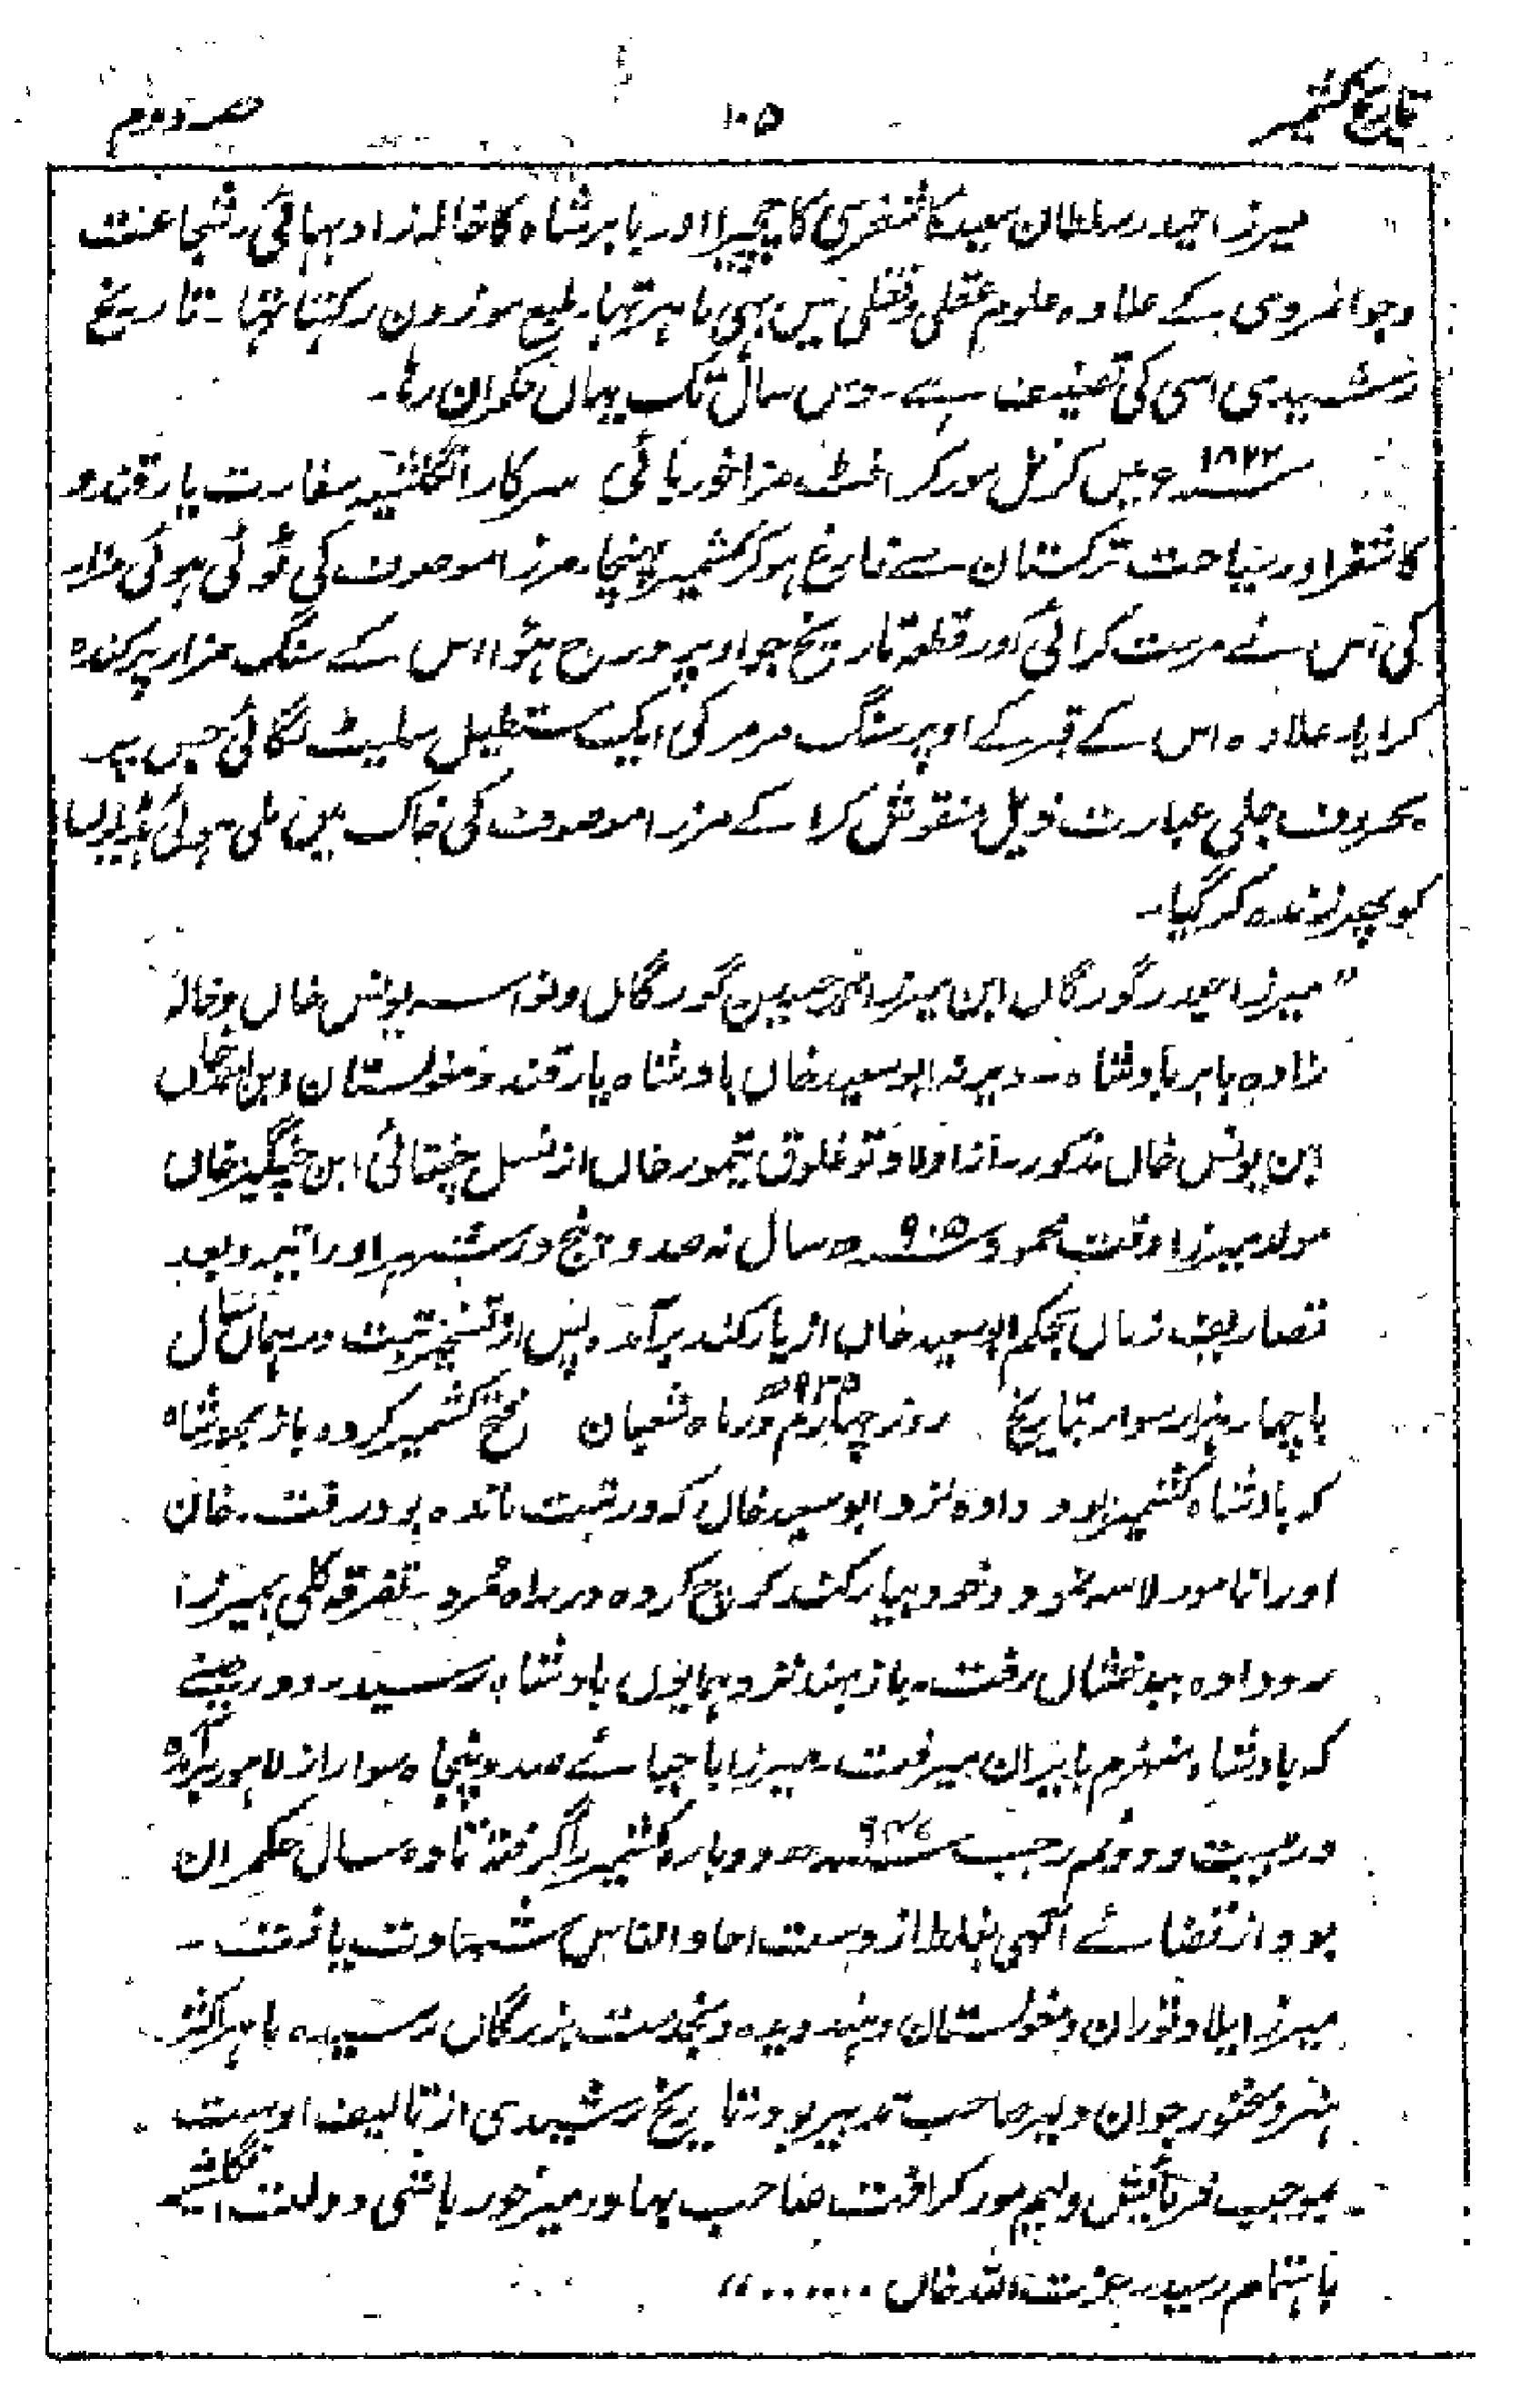 تاریخ کشمیر ۱۰۵ حصہ دوم
میرزا حیدر سلطان سعید کاشغری کا چچیرا اور بابر شاہ کا خالہ زاد بہائی ۔ شجاعت
و جوانمردی کے علاوہ علوم عقلی و نقلی میں بہی ماہر تہا ۔ طبع موزون رکہتا تہا ۔ تاریخ
رشیدی اسی کی تصنیف ہے ۔ دس سال تک یہاں حکمران رہا ۔
۱۸۲۲ء میں کرنل مورکرافٹ میر آخور باشی سرکار انگلشیہ سفارت یارقند و
کاشغر اور سیاحت ترکستان سے فارغ ہو کر کشمیر پہنچا ۔ مرزا موصوف کی ٹوٹی ہوئی مزار
کی اس نے مرمت کرائی اور قطعہ تاریخ جو اوپر درج ہوا اس کے سنگ مزار پر کندہ
کرایا ۔ علاوہ اس کے قبر کے اوپر سنگ مرمر کی ایک مستطیل سلیٹ لگائی جس پر
بحروف جلی عبارت ذیل منقوش کرا کے مرزا موصوف کی خاک میں ملی ہوئی ہڈیوں
کو پھر زندہ کر گیا ۔
"میرزا حیدر گورگاں ابن میرزا محمد حسین گورگاں و نواسہ یونس خاں و خالہ
زادہ بابر بادشاہ ۔ و برادر ابو سعید خاں بادشاہ یارقند و مغولستان و بن احمد خاں
ابن یونس خاں مذکور ۔ از اولاد توغلوق تیمور خاں از نسل چغتائی ابن چنگیز خاں
مولد میرزا وقت محمود ۹۰۵ھ سال نہ صد و پنج در شہر اوراتیہ و بعد
تصاریف زماں بحکم ابو سعید خاں از یارکند برآمد و پس از تسخیر تبت در ہماں سال
با چہار ہزار سوار بتاریخ روز چہارم در ماہ شعبان ۹۳۵ھ فتح کشمیر کردہ باز بمحمد شاہ
کہ بادشاہ کشمیر بود دادہ نزد ابو سعید خاں کہ در تبت ماندہ بود رفت ۔ خان
او را نامور لاسہ نمود و خود بیارکند کوچ کردہ در راہ مرد ۔ تفرقہ کلی بمیرزا
رو دادہ ببدخشاں رفت ۔ باز بہند نزد ہمایوں بادشاہ رسید ۔ و در حینے
کہ بادشاہ منہزم بایران میرفت ۔ میرزا با چہار صد و پنجاہ سوار از لاہور برآمدہ
در بیست و دوئم رجب ۹۴۷ھ دوبارہ کشمیر را گرفتہ تا دہ سال حکمران
بود و از قضائے الٰہی بغلط از دست احاد الناس شہادت یافت ۔
میرزا بلاد توران و مغولستان و ہند دیدہ و بخدمت بزرگاں رسیدہ ماہر اکثر
ہنر و سخنور جوان دلیر صاحب تدبیر بود و تاریخ رشیدی از تالیف اوست
بموجب فرمائش ولیم مورکرافٹ صاحب بہادر میر خور باشی دولت انگلشیہ
باہتمام سید عزت اللہ خاں ......"